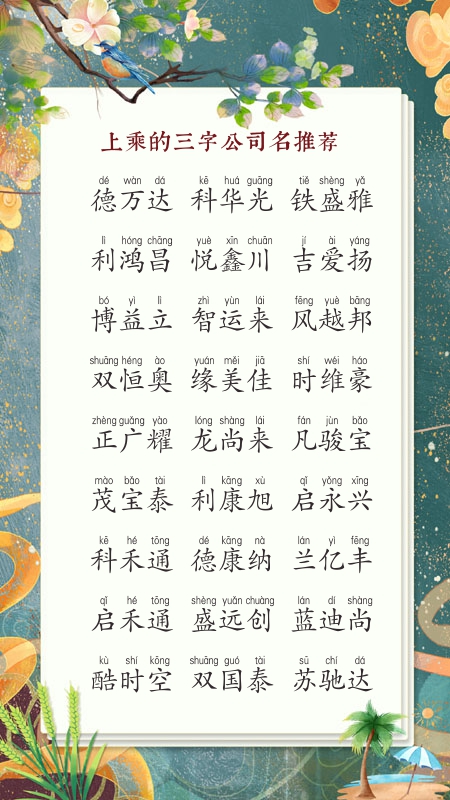 上乘的三字公司名推荐
dé wàn dá kē huá guāng tiě shèng yǎ
德万达 科华光 铁盛雅
lì hóng chāng yuè xīn chuān jí ài yáng
利鸿昌 悦鑫川 吉爱扬
bó yì lì zhì yùn lái fēng yuè bāng
博益立 智运来 风越邦
shuāng héng ào yuán měi jiā shí wéi háo
双恒奥 缘美佳 时维豪
zhèng guǎng yào lóng shàng lái fán jùn bǎo
正广耀 龙尚来 凡骏宝
mào bǎo tài lì kāng xù qǐ yǒng xīng
茂宝泰 利康旭 启永兴
kē hé tōng dé kāng nà lán yì fēng
科禾通 德康纳 兰亿丰
qǐ hé tōng shèng yuǎn chuàng lán dí shàng
启禾通 盛远创 蓝迪尚
kù shí kōng shuāng guó tài sū chí dá
酷时空 双国泰 苏驰达